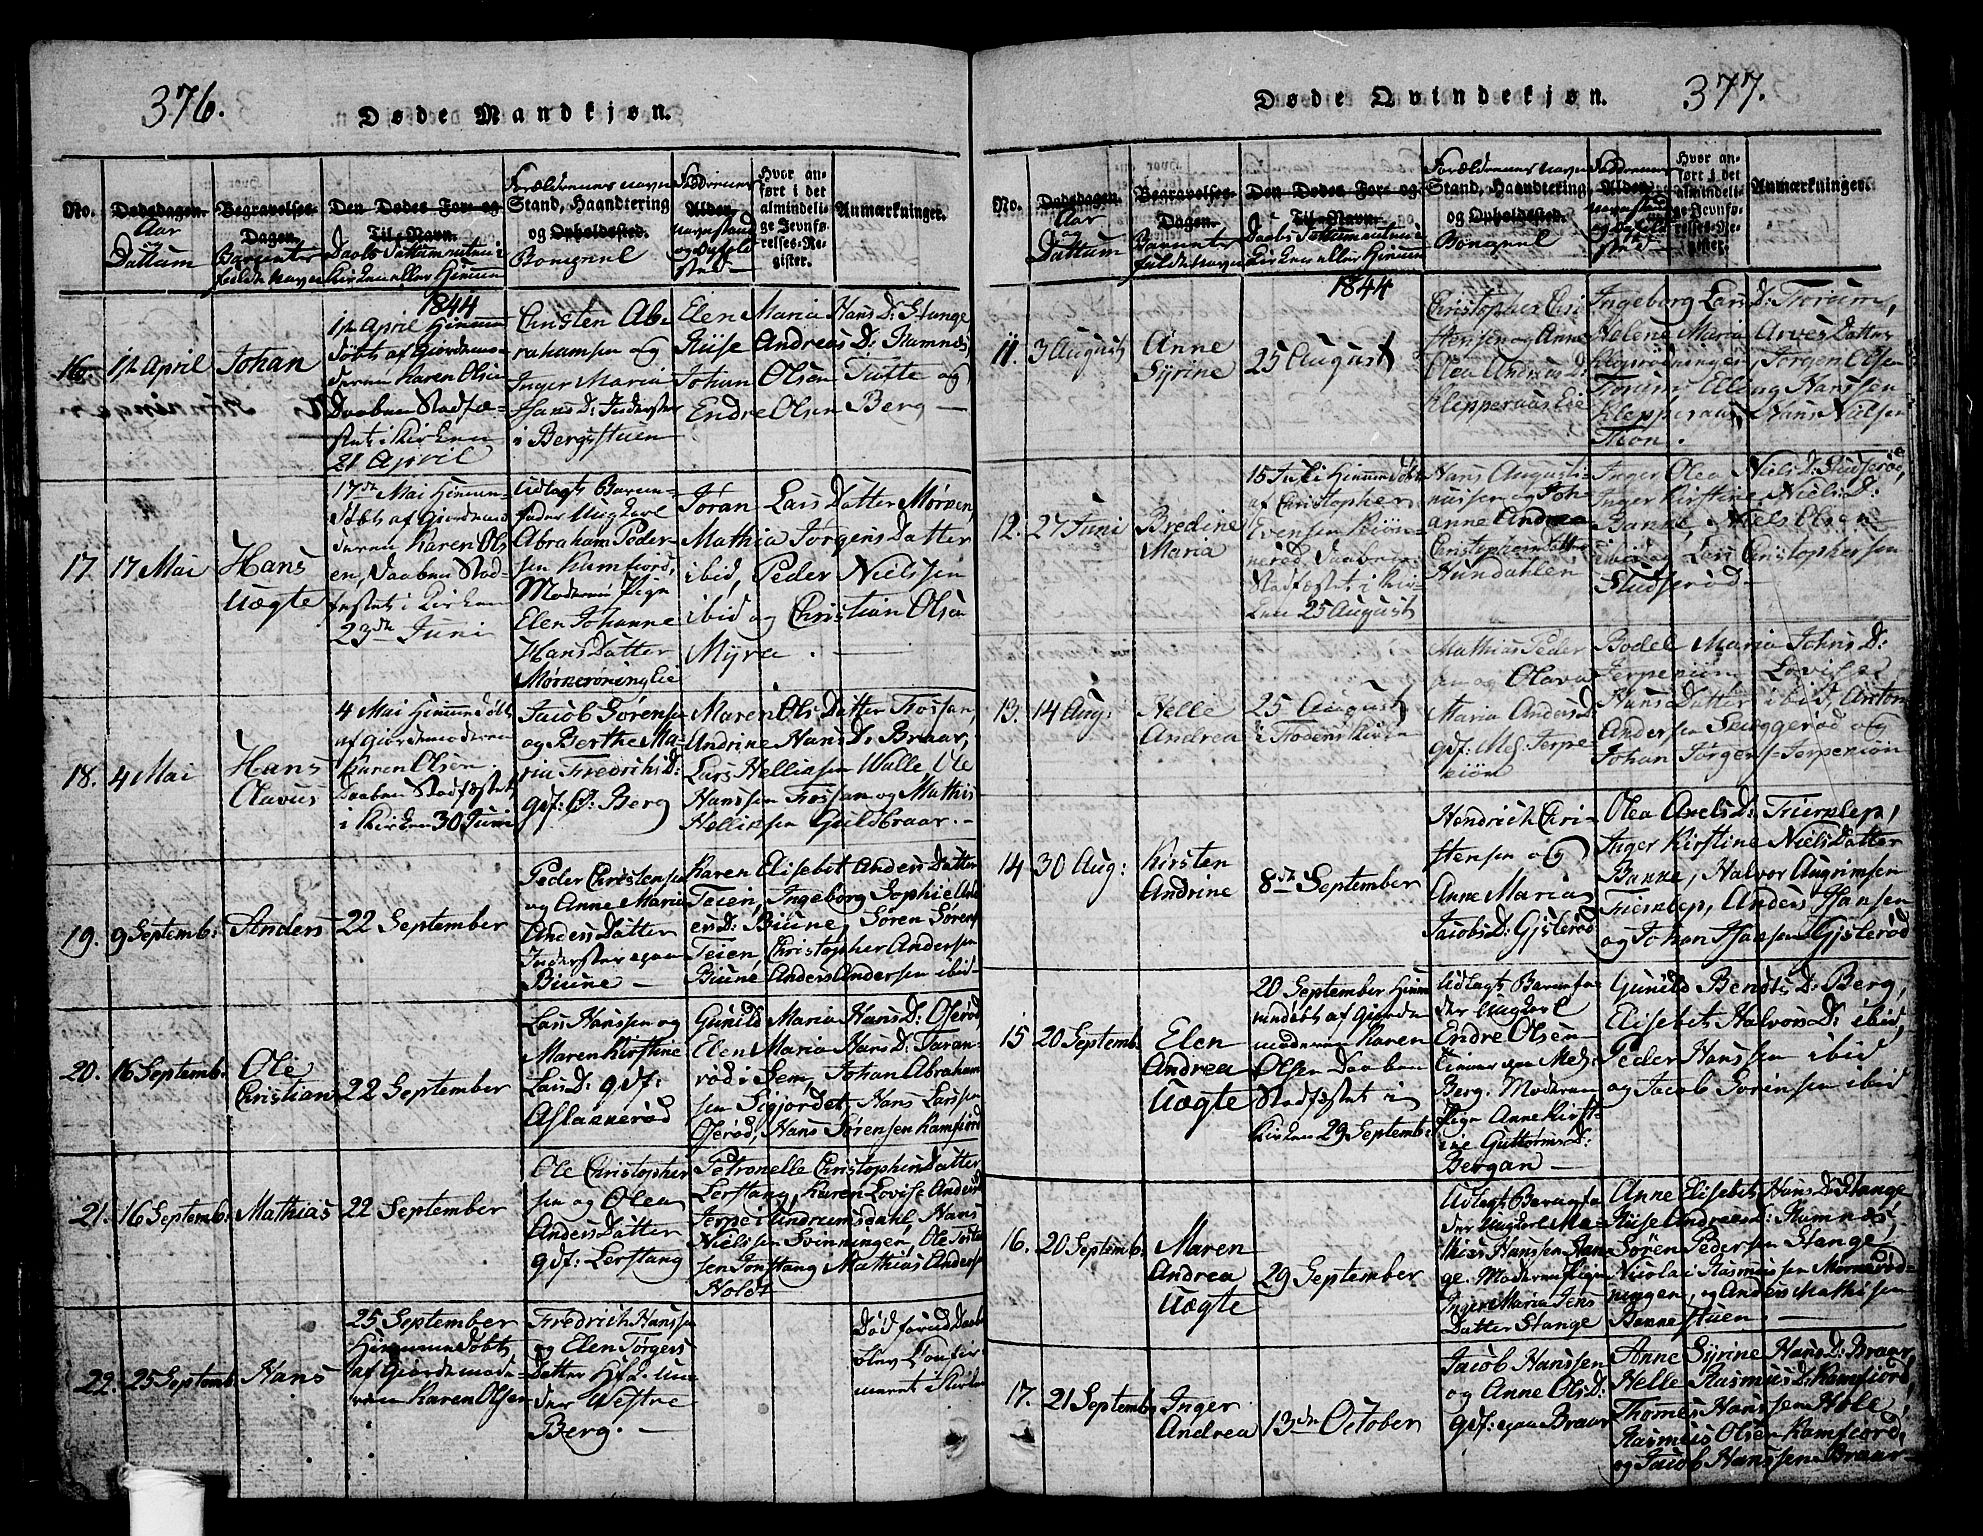 376.
Døde Mandkjøn.
No.
Dødsdagen.
Aar
Dattum
Begravelses-
Dagen.
Barnets
fulde Navn
Den Dødes For- og
Til-Navn.
Daabs Dattum enten i
Kirken eller Hiemme
Forældrenes Navn
Stand, Haandtering
og Opholdssted.
Faddernes
Alder.
Navn Stand
og Ophold
sted
Hvor an-
ført i det
almindeli-
ge Jevnfø-
relses-Re-
gister.
Anmærkninger.
1844
16
12 April
Johan
12 April Hiemme
døbt af Giordemo-
deren Karen Olsen
Daaben Stadfæ-
stet i Kirken
21 April
Christen Ab-
rahamsen og
Inger Maria
Hans D: Inderster
i Bergsstuen
Elen Maria Hans D: Stange,
Riise Andreas D: Ramnes,
Johan Olsen Tufte og
Endre Olsen Berg —
17.
17 Mai
Hans
Uægte
17de Mai Hiemme-
døbt af Giordemo-
deren Karen Ols-
en, Daaben Stad-
festet i Kirken
23de Juni
Udlagt Barne-
fader Ungkarl
Abraham Peder-
sen Ramfiord,
Moderen Pige
Elen Johanne
Hans Datter
Mørnerøningeie
Jøran Lars Datter Mørnen,
Mathia Jørgens Datter
ibid, Peder Nielssen
ibid og Christian Olsen
Myra. —
18.
4 Mai
Hans
Olavus
4 Mai Hiemmedøbt
af Giordemoderen
Karen Olsen.
Daaben Stadfæstet
i Kirken 30 Juni
Jacob Sørensen
og Berthe Ma-
ria Fredrichs D:
gdf: Ø: Berg
Maren Ols Datter Fossan,
Andrine Hans D: Braar,
Lars Helliesen Walle Ole
Hanssen Fossan og Mathis
Helliesen Guldbraar. —
19.
9 Septemb:
Anders
22 September
Peder Christensen
og Anne Maria
Anders Datter
Inderster paa
Biune —
Karen Elisebet Anders Datter
Teien, Ingeborg Sophie And-
ers D: Biune, Søren Sørens
Teien, Christopher Andersen
Biune Anders Andersen ibid
20.
16 Septemb.
Ole
Christian
22 September
Lars Hanssen og
Maren Kirstine
Lars D: gdf:
Aslaknerød
Gunild Maria Hans D: Oserød
Elen Maria Hans D: Taran
rød i Sem, Johan Abraham
sen Sigjordet Hans Larssen
Oserød, Hans Sørensen Ramfiord
21.
16 Septemb:
Mathias
22 September
Ole Christopher
sen og Olea
Anders Datter
gdf: Lerstang
Petronelle Christophers Datter
Lerstang, Karen Lovise Anders
Jerpe i Undrumsdahl, Hans
Nielssen Svinningen, Ole Tosten
sen Jonstang Mathias Anders
Holdt
22.
25 Septemb.
Hans
25 September
Hiemme døbt
af Giordemode-
ren Karen Olsen
Fredrich Hanssen
og Elen Jørgens
Datter Hfd. un
der Westre
Berg. —
Død forend Daaben
blev Confir-
meret i Kirken
377.
Døde Qvindekjøn.
No.
Dødsdagen.
Aar
og
Dattum
Begravelses-
Dagen.
Barnets
fulde Navn
Den Dødes For- og
Til-Navn.
Daabs Dattum enten i
Kirken eller Hiemme
Forældrenes Navn
Stand, Haandtering
og Opholdssted.
Faddernes
Alder.
Navn Stand
og Ophold
sted
Hvor an-
ført i det
almindeli-
ge Jevnfø-
relses-Re-
gister.
Anmærkninger.
1844
11.
3 August
Anne
Syrine
25 August
Christopher Chri
stensen og Anne
Olea Andreas D:
Klepperaas Eie
Ingeborg Lars D: Trorum,
Helene Maria Arves Datter
Jørgen Olsen
Trorum Ole og Hanssen
Klepperaas, Hans Nielsen
Tion.
12.
27 Juni
Bredine
Maria
15 Juli Hiemmedøbt
af Christopher
Evensen Kiøn-
nerød. Daaben
Stadfestet i Kir-
ken 25 August
Hans Augusti-
nussen og Joh-
anne Andrea
Christophers Datter
Hundahlen
Inger Olea Niels D: Studserød,
Inger Kirstine Niels D:
Banne, Niels Olsen
ibid og Lars Christophersen
Studserød
13.
14 Aug:
Helle
Andrea
25 August
i Fodens Kirke
Mathias Peder
sen og Olava
Maria Anders D
gdf: Mel. Jerpe
kiøn
Bodel Maria Johns D:
Jerpekiøn, Lovise
Hans Datter ibid, Anton
Andersen Snuggerød og
Johan Jørgens Jerpekiøn
14
30 Aug:
Kirsten
Andrine
8de September
Hendrich Chri-
stensen og
Anne Maria
Jacobs D: Gislerød
Olea Axels D: Fierslep,
Inger Kirstine Niels Datter
Banne, Halvor Augrimsen
Fierslep, Anders Hansen
og Johan Hansen Gislerød
15
20 Septemb.
Elen
Andrea
Uægte
20 September Hiem
medøbt af Giorde
moderen Karen
Olsen Daaben
Stadfæstet i
Kirken 29 Septemb:
Udlagt Barnefa-
der Ungkarl
Endre Olsen
Tiener paa Mel.
Berg. Moderen
Pige Anne Kirst-
ine Guttorms D:
Bergan —
Gunild Bendts D: Berg,
Elisebet Halvors D: ibid,
Peder Hanssen ibid
og Jacob Sørensen ibid
16.
20 Septemb.
Maren
Andrea
Uægte
29 September
Udlagt Barnefa
der Ungkarl Ma-
thias Hanssen Stan-
ge. Moderen Pigen
Inger Maria Jens
Datter Stange
Anne Elisebet Hans D: Stange
Riise Andreas D: Ramnes,
Søren Pedersen Stange
Nicolai Rasmussen Mørnerød-
ningen, og Anders Mathisen
Banne Stuen. —
17.
21 Septemb
Inger
Andrea
13de October
Jacob Hanssen
og Anne Ols D:
gdf: paa Braar
Anne Syrine Hans D: Braar,
Helle Rasmus D: Ramfiord,
Thomes Hanssen Hole,
Rasmus Olsen Ramfiord,
og Jacob Hanssen Braar —